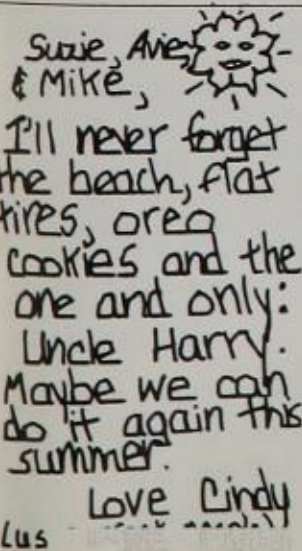 Suzie, Avie,
& Mike,
I'll never forget
the beach, flat
tires, oreo
cookies and the
one and only:
Uncle Harry.
Maybe we can
do it again this
summer.
Love Cindy